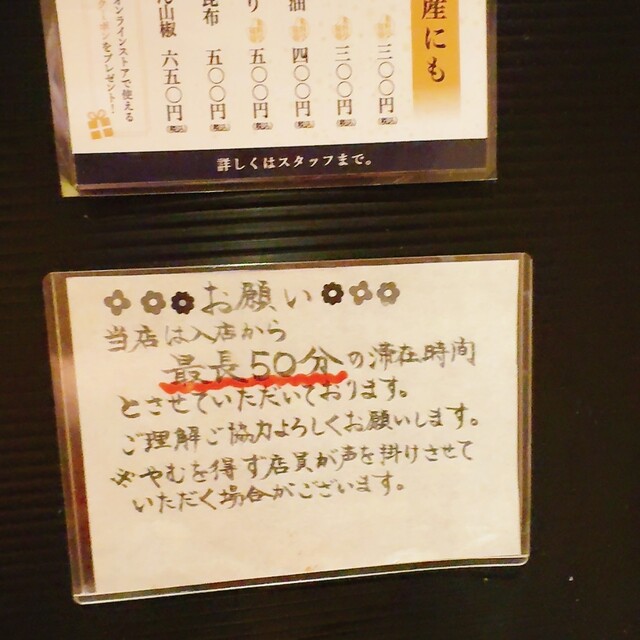 産にも
三〇〇円
三〇〇円
油
四〇〇円
り
五〇〇円
昆布
五〇〇円
山椒
六五〇円
オンラインストアで使える
をプレゼント!
詳しくはスタッフまで。
お願い
当店は入店から
最長50分の滞在時間
とさせていただいております。
ご理解ご協力よろしくお願いします。
※やむを得ず店員が声を掛けさせて
いただく場合がございます。